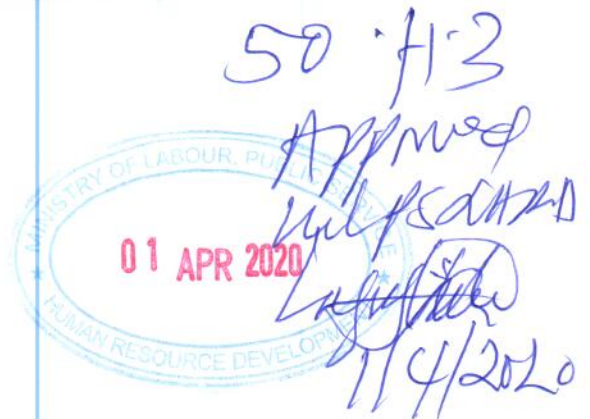 50 · H·3
Approved
MINISTRY OF LABOUR, PUBLIC SERVICE
01 APR 2020
HUMAN RESOURCE DEVELOPMENT
1/4/2020